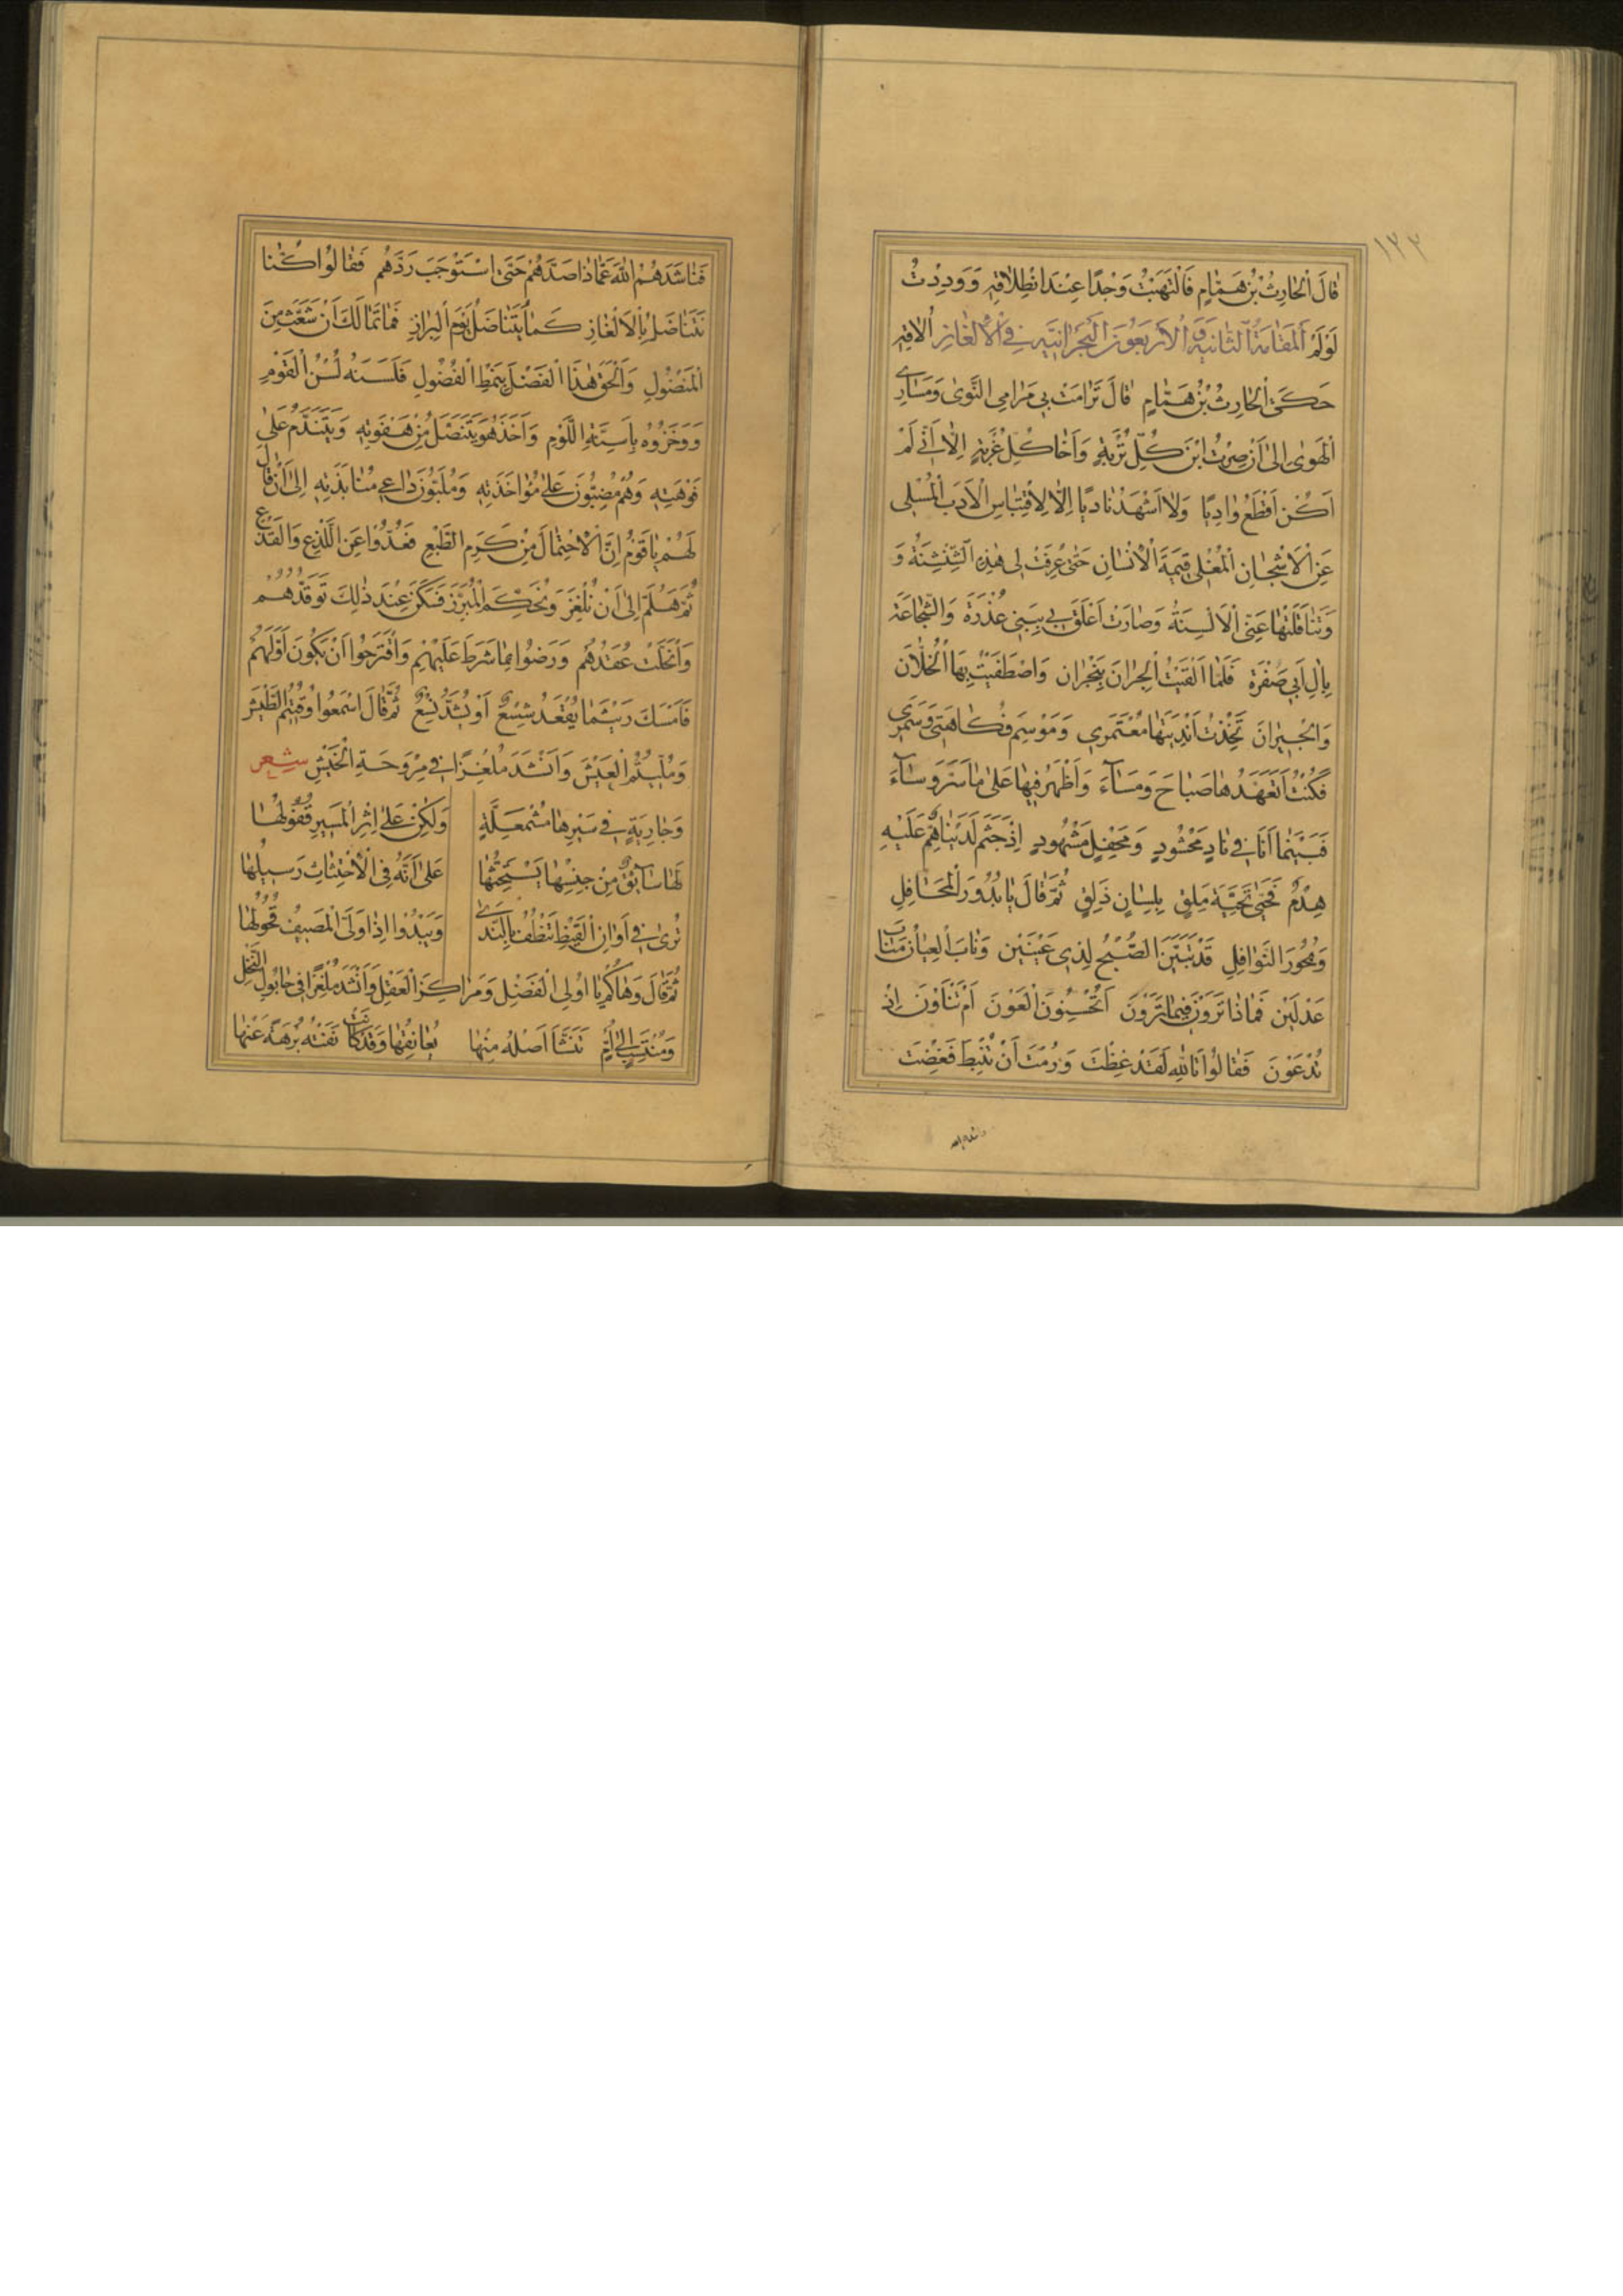 ١٣٣
قَالَ الْحَارِثُ بْنُ هَمَّامٍ فَالْتَهَبْتُ وَجْدًا عِنْدَ انْطِلَاقِهِ وَوَدِدْتُ
لَوْ لَمْ اَلْمَقَامَةُ الثَّانِيَةِ وَالْاَرْبَعُونَ النَّجْرَانِيَّةِ فِي الْاَلْغَازِ اُلَاقِهِ
حَكَى الْحَارِثُ بْنُ هَمَّامٍ قَالَ تَرَامَتْ بِي مَرَامِي النَّوٰى وَمَسَارِي
الْهَوٰى اِلٰى اَنْ صِرْتُ ابْنَ كُلِّ تُرْبَةٍ وَاَخَا كُلِّ غُرْبَةٍ اِلَّا اَنِّي لَمْ
اَكُنْ اَقْطَعُ وَادِيًا وَلَا اَشْهَدُ نَادِيًا اِلَّا لِاقْتِبَاسِ الْاَدَبِ الْمُسْلِي
عَنِ الْاَشْجَانِ الْمُغْلِي قِيمَةَ الْاِنْسَانِ حَتّٰى عُرِفَتْ لِي هٰذِهِ الشِّنْشِنَةُ وَ
وَتَنَاقَلَتْهَا عَنِّي الْاَلْسِنَةُ وَصَارَتْ اَعْلَقَ بِي بِبَنِي عُذْرَةَ وَالشَّجَاعَةِ
بِاٰلِ اَبِي صُفْرَةَ فَلَمَّا اَلْقَيْتُ الْجِرَانَ بِنَجْرَانَ وَاصْطَفَيْتُ بِهَا الْخُلَّانَ
وَالْجِيرَانَ تَخِذْتُ اَنْدِيَتَهَا مُعْتَمَرِي وَمَوْسِمَ فُكَاهَتِي وَسَمَرِي
فَكُنْتُ اَتَعَهَّدُهَا صَبَاحَ وَمَسَآءَ وَاَظْهَرُ فِيهَا عَلٰى مَا سَرَّ وَسَآءَ
فَبَيْنَمَا اَنَا فِي نَادٍ مَحْشُودٍ وَمَحْفِلٍ مَشْهُودٍ اِذْ جَثَمَ لَدَيْنَا هِمٌّ عَلَيْهِ
هِدْمٌ فَحَيّٰى تَحِيَّةَ مَلِقٍ بِلِسَانٍ ذَلِقٍ ثُمَّ قَالَ يَا بُدُورَ الْمَحَافِلِ
وَبُحُورَ النَّوَافِلِ قَدْ تَبَيَّنَ الصُّبْحُ لِذِي عَيْنَيْنِ وَنَابَ الْعِيَانُ مَنَابَ
عَدْلَيْنِ فَمَاذَا تَرَوْنَ فِيمَا تَرَوْنَ اَتُحْسِنُونَ الْعَوْنَ اَمْ تَنْاَوْنَ اِذْ
تُدْعَوْنَ فَقَالُوا تَاللّٰهِ لَقَدْ غِظْتَ وَرُمْتَ اَنْ تُنْبِطَ فَغِضْتَ
فَنَاشَدَهُمُ اللّٰهَ عَمَّاذَا صَدَّهُمْ حَتّٰى اسْتَوْجَبَ رَدَّهُمْ فَقَالُوا كُنَّا
نَتَنَاضَلُ بِالْاَلْغَازِ كَمَا يُتَنَاضَلُ يَوْمَ الْبِرَازِ فَمَا تَمَالَكَ اَنْ شَعَّثَ مِنَ
الْمَنْضُولِ وَاَلْحَقَ هٰذَا الْفَضْلَ بِنَمَطِ الْفُضُولِ فَلَسَنَتْهُ لُسُنُ الْقَوْمِ
وَوَخَزُوهُ بِاَسِنَّةِ اللَّوْمِ وَاَخَذَ هُوَ يَتَنَصَّلُ مِنْ هَفْوَتِهِ وَيَتَنَدَّمُ عَلٰى
فَوْهَتِهِ وَهُمْ مُضِبُّونَ عَلٰى مُؤَاخَذَتِهِ وَمُلَبُّونَ دَاعِي مُنَابَذَتِهِ اِلٰى اَنْ قَالَ
لَهُمْ يَا قَوْمُ اِنَّ الْاِحْتِمَالَ مِنْ كَرَمِ الطَّبْعِ فَعَدُّوا عَنِ اللَّذْعِ وَالْقَذْعِ
ثُمَّ هَلُمَّ اِلٰى اَنْ نُلْغِزَ وَنُحَكِّمَ الْمُبَرِّزَ فَسَكَنَ عِنْدَ ذٰلِكَ تَوَقُّدُهُمْ
وَانْحَلَّتْ عُقَدُهُمْ وَرَضُوا بِمَا شَرَطَ عَلَيْهِمْ وَاقْتَرَحُوا اَنْ يَكُونَ اَوَّلَهُمْ
فَاَمْسَكَ رَيْثَمَا يُعْقَدُ شِسْعٌ اَوْ يُشَدُّ نِسْعٌ ثُمَّ قَالَ اسْمَعُوا وُقِيتُمُ الطَّيْشَ
وَمُلِّيتُمُ الْعَيْشَ وَاَنْشَدَ مُلْغِزًا فِي مِرْوَحَةِ الْخَيْشِ شِعر
وَجَارِيَةٍ فِي سَيْرِهَا مُشْمَعِلَّةٍ وَلٰكِنْ عَلٰى اِثْرِ الْمَسِيرِ قُفُولُهَا
لَهَا سَآئِقٌ مِنْ جِنْسِهَا يَسْتَحِثُّهَا عَلٰى اَنَّهُ فِي الْاِحْتِثَاثِ رَسِيلُهَا
تُرٰى فِي اَوَانِ الْقَيْظِ تَنْظُفُ بِالنَّدٰى وَيَبْدُوا اِذَا وَلَّى الْمَصِيفُ قُحُولُهَا
ثُمَّ قَالَ وَهَاكُمْ يَا اُولِي الْفَضْلِ وَمَرَاكِزَ الْعَقْلِ وَاَنْشَدَ مُلْغِزًا فِي حَابُولِ النَّخْلِ
وَمُنْتَسِبٍ اِلٰى اُمٍّ تَنَشَّا اَصْلُهُ مِنْهَا يُعَانِقُهَا وَقَدْ كَانَتْ نَفَتْهُ بُرْهَةً عَنْهَا